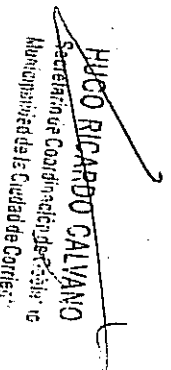 HUGO RICARDO CALVANO
Secretario de Coordinación de Gobierno
Municipalidad de la Ciudad de Corrientes